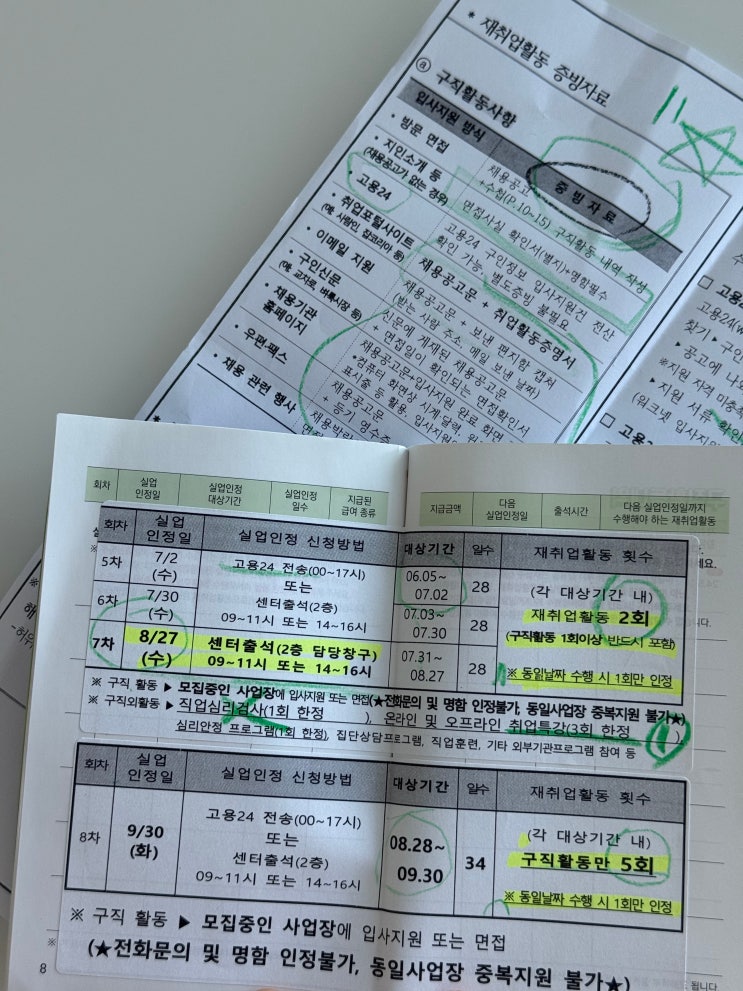 * 재취업활동 증빙자료
ⓐ 구직활동사항
입사지원 방식
증빙자료
• 방문 면접
채용공고
+수첩(P.10~15) 구직활동 내역 작성
• 지인소개 등
(채용공고가 없는 경우)
면접사실 확인서(별지)+명함필수
• 고용24
고용24 구인정보 입사지원건 전산
확인 가능, 별도증빙 불필요
• 취업포털사이트
(예. 사람인, 잡코리아 등)
채용공고문 + 취업활동증명서
• 이메일 지원
채용공고문 + 보낸 편지함 캡쳐
(받는 사람 주소, 메일 보낸 날짜)
• 구인신문
(예. 교차로, 벼룩시장 등)
신문에 게재된 채용공고문
+ 면접일이 확인되는 면접확인서
• 채용기관
홈페이지
채용공고문+입사지원 완료 화면
•컴퓨터 화면상 시계/달력
표시줄 등 활용, 입사지원
• 우편·팩스
채용공고문
+ 등기 영수증
• 채용 관련 행사
채용박람
고용24(w
찾기 ▸ 구인
▸ 공고에 나오
※지원 자격 미충족
▸ 지원 서류 확인
(워크넷 입사지원
회차
실업
인정일
실업인정
대상기간
실업인정
일수
지급된
급여 종류
지급금액
다음
실업인정일
출석시간
다음 실업인정일까지
수행해야 하는 재취업활동
회차
실업
인정일
실업인정 신청방법
대상기간
일수
재취업활동 횟수
5차
7/2
(수)
고용24 전송(00~17시)
또는
센터출석(2층)
09~11시 또는 14~16시
06.05~
07.02
28
(각 대상기간 내)
재취업활동 2회
(구직활동 1회이상 반드시 포함)
※ 동일날짜 수행 시 1회만 인정
6차
7/30
(수)
07.03~
07.30
28
7차
8/27
(수)
센터출석(2층 담당창구)
09~11시 또는 14~16시
07.31~
08.27
28
※ 구직 활동 ▶ 모집중인 사업장에 입사지원 또는 면접(★전화문의 및 명함 인정불가, 동일사업장 중복지원 불가★)
※ 구직외활동 ▶ 직업심리검사(1회 한정 ), 온라인 및 오프라인 취업특강(3회 한정 ① )
심리안정 프로그램(1회 한정), 집단상담프로그램, 직업훈련, 기타 외부기관프로그램 참여 등
회차
실업
인정일
실업인정 신청방법
대상기간
일수
재취업활동 횟수
8차
9/30
(화)
고용24 전송(00~17시)
또는
센터출석(2층)
09~11시 또는 14~16시
08.28~
09.30
34
(각 대상기간 내)
구직활동만 5회
※ 동일날짜 수행 시 1회만 인정
※ 구직 활동 ▶ 모집중인 사업장에 입사지원 또는 면접
(★전화문의 및 명함 인정불가, 동일사업장 중복지원 불가★)
8